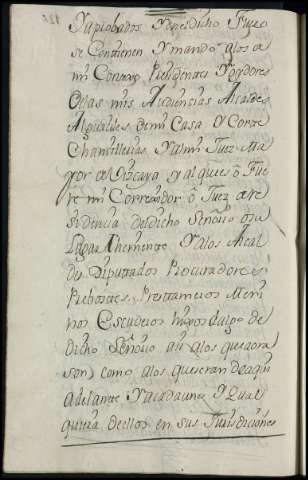 Y aprobados Y en el dicho Fuero
se Contienen Y mando a los a
mi Consexo Presidentes Y oydores
de las mis Audiencias Alcaldes
Alguaciles de mi Casa Y Corte
Chancillerias, Y a mi Juez Ma
yor de Vizcaya Y al que es ô Fue
re mi Correxidor ô Juez de re
sidencia del dicho Señorio ô su
Lugar Thernente Y a los Alcal
des Diputados Procuradores
Prebostes, Prestameros Meri
nos Escuderos hijos dalgo de
dicho Señorio asi a los que aora
son, como a los que seran de aqui
adelante Y a cada uno, Y Qual
quiera de ellos en sus Jurisdiciones